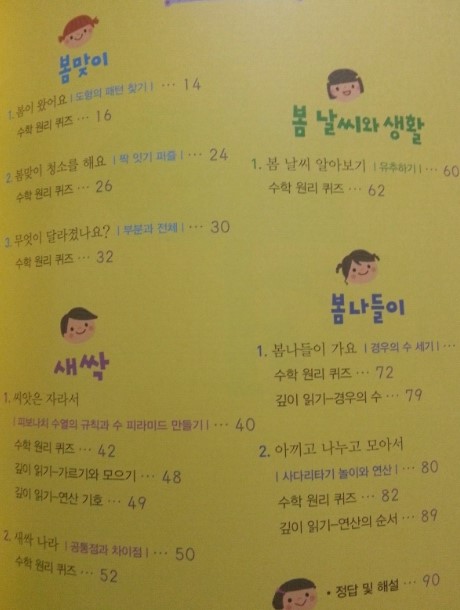 봄맞이
1. 봄이 왔어요 | 도형의 패턴 찾기 | ··· 14
수학 원리 퀴즈 ··· 16
2. 봄맞이 청소를 해요 | 짝 잇기 퍼즐 | ··· 24
수학 원리 퀴즈 ··· 26
3. 무엇이 달라졌나요? | 부분과 전체 | ··· 30
수학 원리 퀴즈 ··· 32
새싹
1. 씨앗은 자라서
| 피보나치 수열의 규칙과 수 피라미드 만들기 | ··· 40
수학 원리 퀴즈 ··· 42
깊이 읽기-가르기와 모으기 ··· 48
깊이 읽기-연산 기호 ··· 49
2. 새싹 나라 | 공통점과 차이점 | ··· 50
수학 원리 퀴즈 ··· 52
봄 날씨와 생활
1. 봄 날씨 알아보기 | 유추하기 | ··· 60
수학 원리 퀴즈 ··· 62
봄나들이
1. 봄나들이 가요 | 경우의 수 세기 | ···
수학 원리 퀴즈 ··· 72
깊이 읽기-경우의 수 ··· 79
2. 아끼고 나누고 모아서
| 사다리타기 놀이와 연산 | ··· 80
수학 원리 퀴즈 ··· 82
깊이 읽기-연산의 순서 ··· 89
• 정답 및 해설 ··· 90